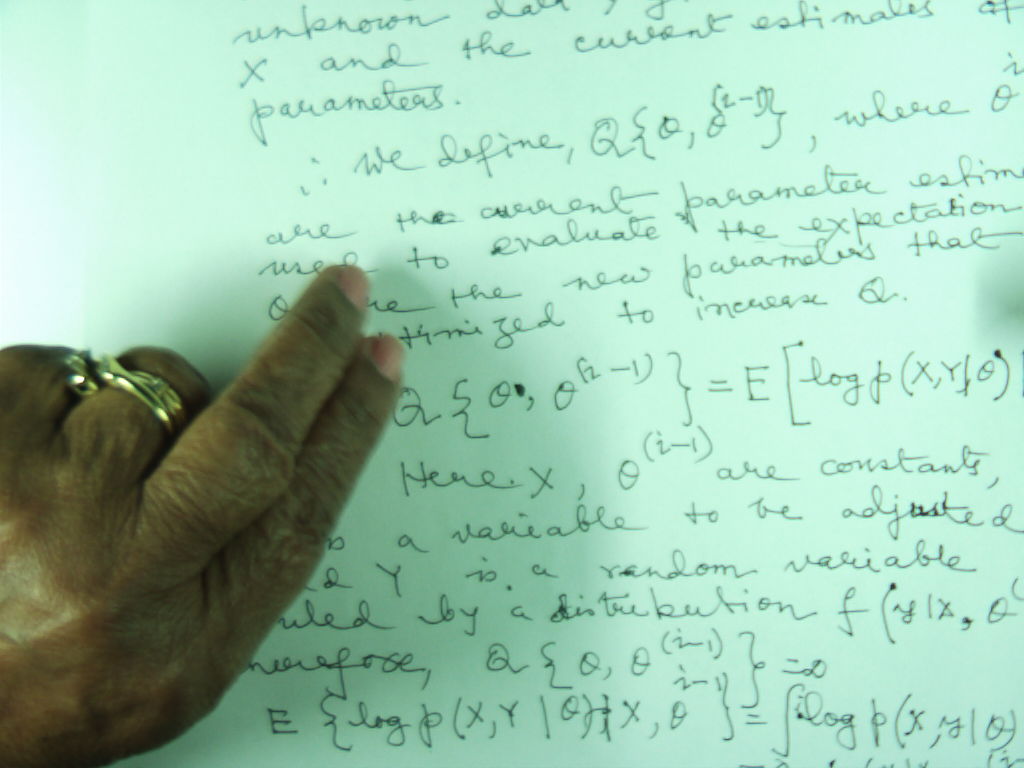 unknown data
X and the current estimates of
parameters.
∴ we define, Q{θ, θ^{(i-1)}}, where θ
are the current parameter estim
used to evaluate the expectation
the new parameters that
timized to increase Q.
Q{θ, θ^(i-1)} = E[log p(X,Y|θ)
Here X, θ^(i-1) are constants,
a variable to be adjusted
d Y is a random variable
by a distribution f(y|X, θ^(
Therefore, Q{θ, θ^(i-1)} =
E{log p(X,Y|θ)|X, θ^{i-1}} = ∫log p(X,y|θ)